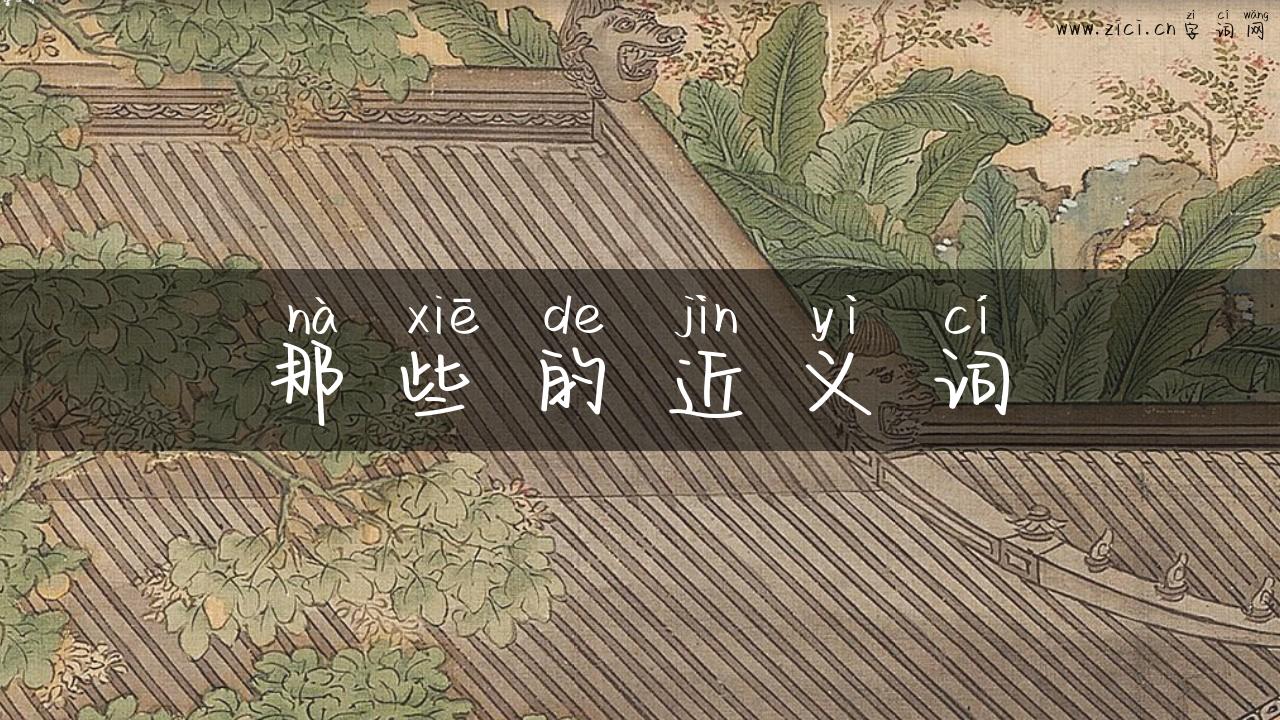 zì cí wǎng
www.zici.cn 字词网
nà xiē de jìn yì cí
那些的近义词